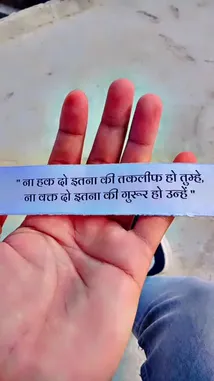 " ना हक दो इतना की तकलीफ हो तुम्हे,
ना वक्त दो इतना की गुरूर हो उन्हें "